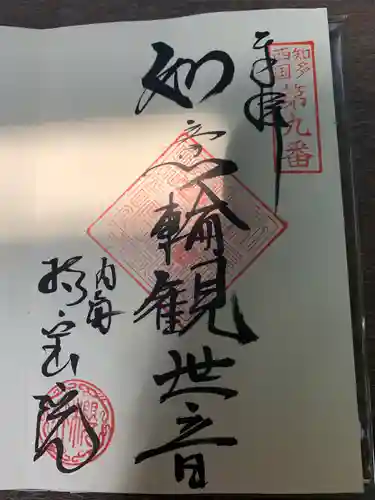 知多
西国
第九番
奉拝
如意輪観世音
内海
妙音院